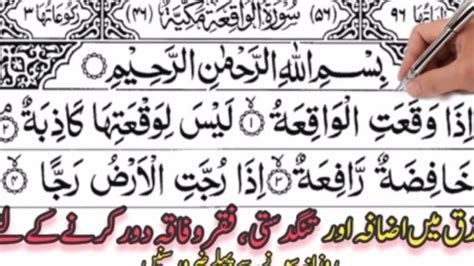 اٰيَاتُهَا ٩٦ (٥٦) سُوْرَةُ الْوَاقِعَةِ مَكِّيَّةٌ (٤٦) رُكُوْعَاتُهَا ٣
بِسْمِ اللّٰهِ الرَّحْمٰنِ الرَّحِيْمِ
اِذَا وَقَعَتِ الْوَاقِعَةُ ۝١ لَيْسَ لِوَقْعَتِهَا كَاذِبَةٌ ۝٢
خَافِضَةٌ رَّافِعَةٌ ۝٣ اِذَا رُجَّتِ الْاَرْضُ رَجًّا ۝٤
میں اضافہ اور تنگدستی، فقر و فاقہ دور کرنے کے
سے پہلے